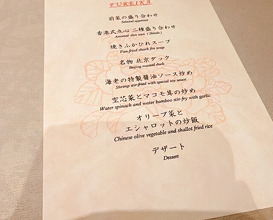 YUREIKA
前菜の盛り合わせ
Seasonal appetizer
香港式点心 二種盛り合わせ
Assorted dim sum (2kinds)
焼きふかひれスープ
Pan fried shark fin soup
名物 北京ダック
Beijing roasted duck
海老の特製醤油ソース炒め
Shrimp stir-fried with special soy sauce
空芯菜とマコモ茸の炒め
Water spinach and water bamboo stir-fry with garlic
オリーブ菜と
エシャロットの炒飯
Chinese olive vegetable and shallot fried rice
デザート
Dessert